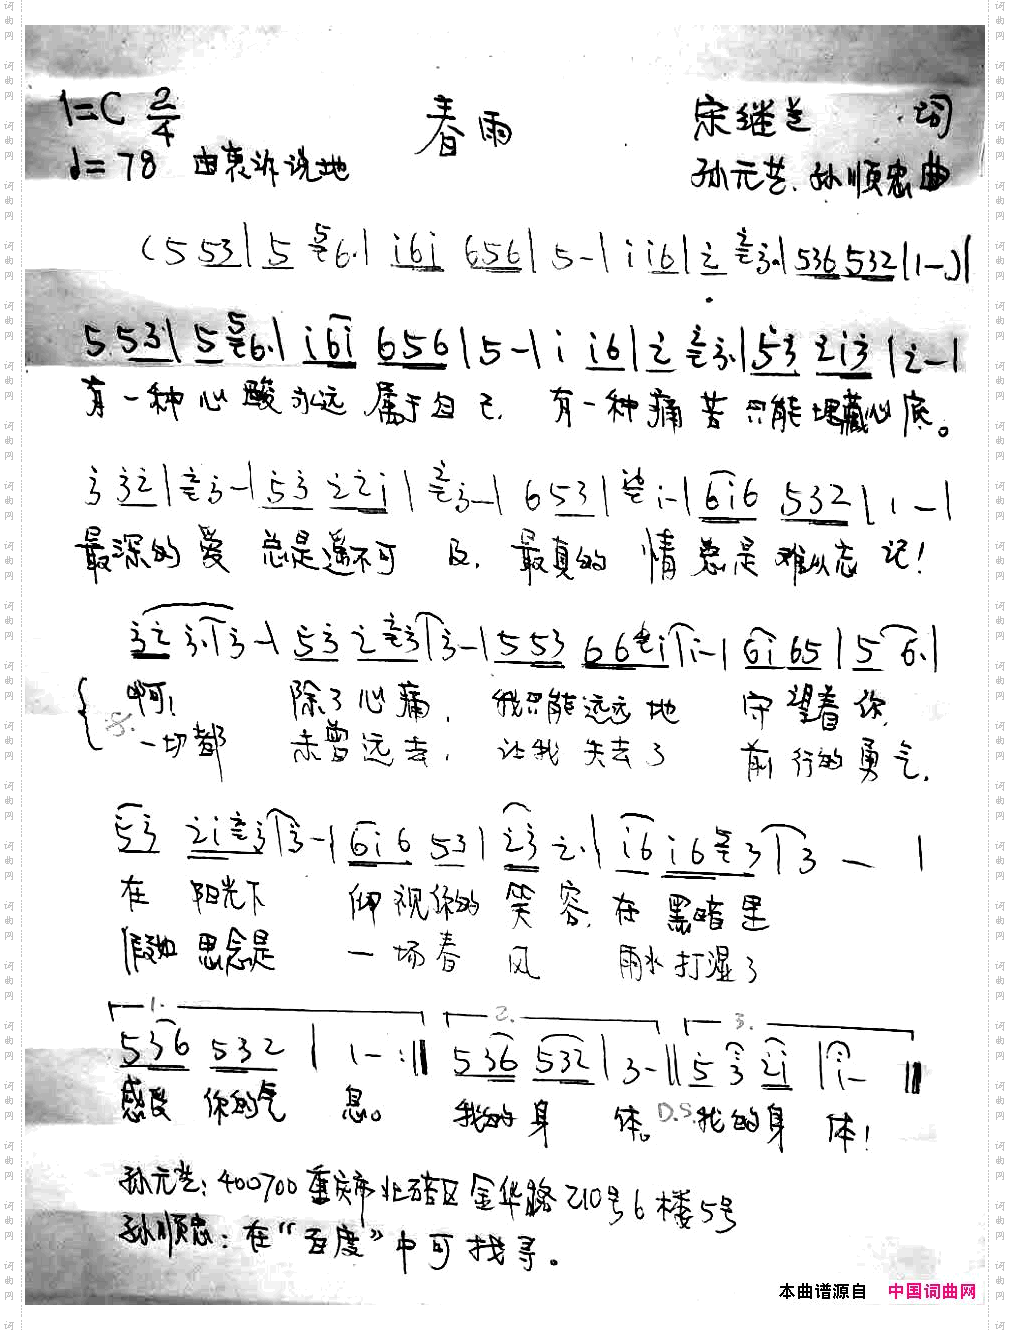 1=C 2/4 春雨 宋继兰 词
♩=78 由衷诉说地 孙元芝、孙顺忠 曲
(5 53| 5 6.| i6i 656| 5 -| i i6| 2 3.| 536 532| 1 -)|
5 53| 5 6.| i6i 656| 5 -| i i6| 2 3.| 53 2i3| 2 -|
有一种心酸永远属于自己, 有一种痛苦只能埋藏心底。
3 32| 3 -| 53 22i| 3 -| 6 53| i -| 6i6 532| 1 -|
最深的爱 总是遥不可 及, 最真的 情 总是难以忘 记!
32 3.| 3 -| 53 2 3| 3 -| 5 53 66 i| i -| 6i 65| 5 6.|
啊! 除了心痛, 我只能远远地 守望着你,
一切都 未曾远去, 让我失去了 前行的勇气,
53 2i 3| 3 -| 6i6 53| 23 2.| i6 i6 3| 3 - |
在 阳光下 仰视你的 笑容, 在黑暗里
假如思念是 一场春 风 雨水打湿了
1. 2. 3.
536 532 | 1 - :‖ 536 532| 3 -‖ 5 3 2i | i - ‖
感受 你的气 息。 我的身 体。 D.S. 我的身 体!
孙元芝: 400700 重庆市北碚区金华路210号6楼5号
孙顺忠: 在“百度”中可找寻。
本曲谱源自 中国词曲网